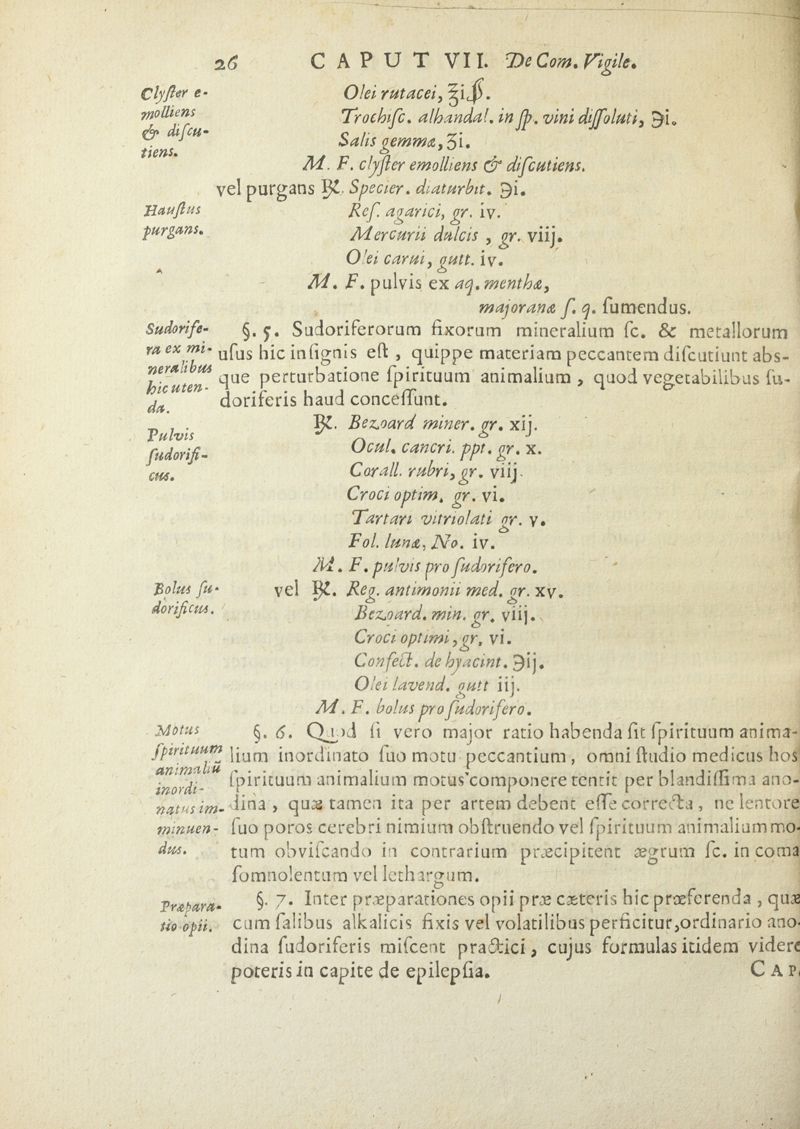 26 CAPUT VII. De Com. Vigile.
Clyſter e-
molliens
& diſcu-
tiens.
Olei rutacei, ℥iꝭ.
Trochiſc. alhandal. in ſp. vini diſſoluti, ℈i.
Salis gemmæ, ʒi.
M. F. clyſter emolliens & diſcutiens.
vel purgans ℞. Specier. diaturbit. ℈i.
Hauſtus
purgans.
Reſ. agarici, gr. iv.
Mercurii dulcis , gr. viij.
Olei carui, gutt. iv.
M. F. pulvis ex aq. menthæ,
majoranæ ſ. q. ſumendus.
Sudorife-
ra ex mi-
neralibus
hic uten-
da.
§. 5. Sudoriferorum fixorum mineralium ſc. & metallorum
uſus hic inſignis eſt , quippe materiam peccantem diſcutiunt abs-
que perturbatione ſpirituum animalium , quod vegetabilibus ſu-
doriferis haud conceſſunt.
Pulvis
ſudorifi-
cus.
℞. Bezoard miner. gr. xij.
Ocul. cancri. ppt. gr. x.
Corall. rubri, gr. viij.
Croci optim. gr. vi.
Tartari vitriolati gr. v.
Fol. lunæ, No. iv.
M. F. pulvis pro ſudorifero.
Bolus ſu-
dorificus.
vel ℞. Reg. antimonii med. gr. xv.
Bezoard. min. gr. viij.
Croci optimi, gr, vi.
Confect. de hyacint. ℈ij.
Olei lavend. gutt iij.
M. F. bolus pro ſudorifero.
Motus
ſpirituum
animaliū
inordi-
natus im-
minuen-
dus.
§. 6. Quod ſi vero major ratio habenda ſit ſpirituum anima-
lium inordinato ſuo motu peccantium, omni ſtudio medicus hos
ſpirituum animalium motus componere tentit per blandiſſima ano-
dina , quæ tamen ita per artem debent eſſe correcta, ne lentore
ſuo poros cerebri nimium obſtruendo vel ſpirituum animalium mo-
tum obviſcando in contrarium præcipitent ægrum ſc. in coma
ſomnolentum vel lethargum.
Præpara-
tio opii.
§. 7. Inter præparationes opii præ cæteris hic præferenda , quæ
cum ſalibus alkalicis fixis vel volatilibus perficitur, ordinario ano-
dina ſudoriferis miſcent practici, cujus formulas itidem videre
poteris in capite de epilepſia.
CAP.